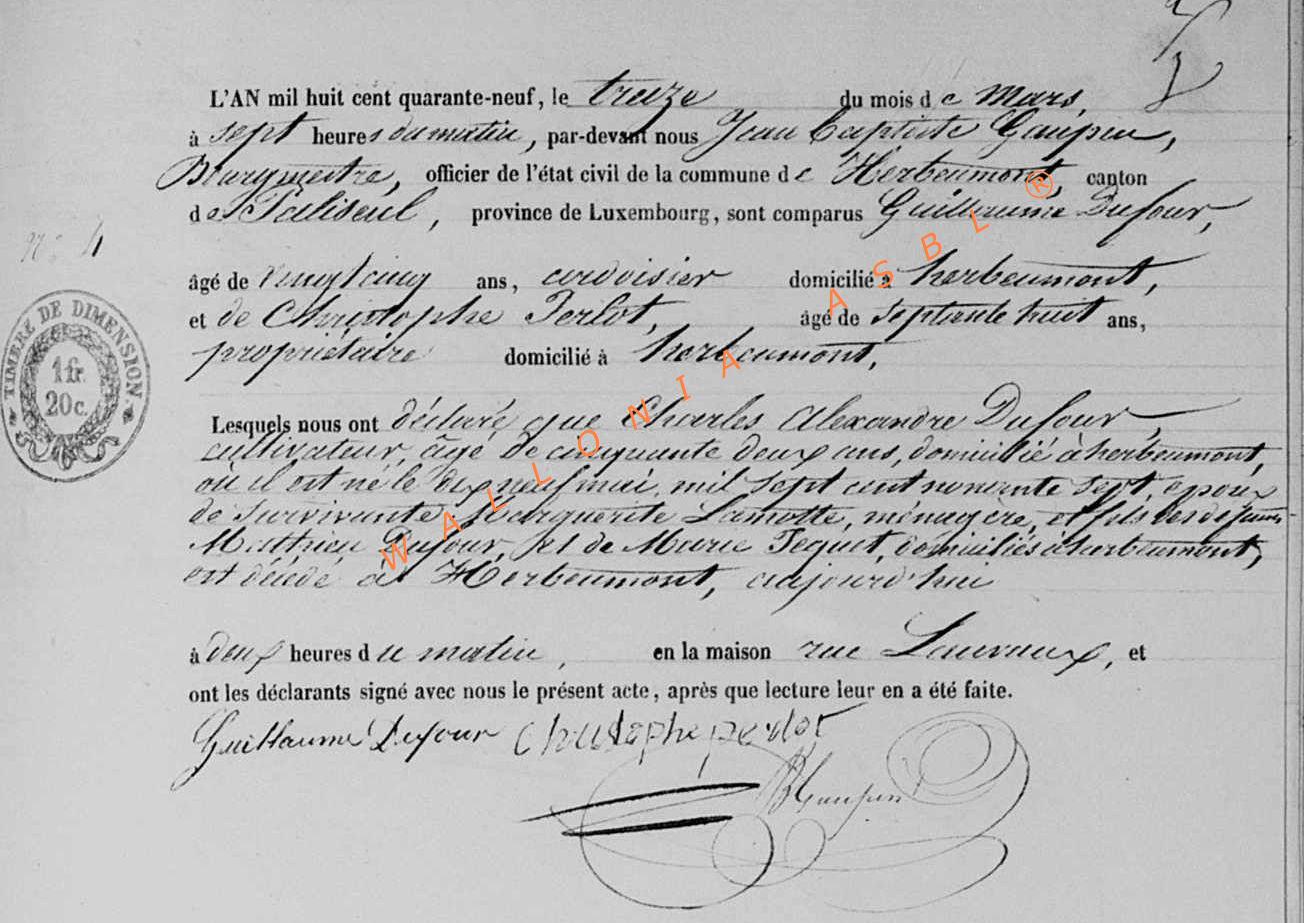 L'AN mil huit cent quarante-neuf, le treize du mois de mars,
à sept heures du matin, par-devant nous Jean Baptiste Gaupin,
Bourgmestre, officier de l'état civil de la commune de Herbeumont, canton
de Paliseul, province de Luxembourg, sont comparus Guillaume Dufour,
N.º 4
âgé de vingt cinq ans, ardoisier domicilié à herbeumont,
et de Christophe Perlot, âgé de septante huit ans,
propriétaire domicilié à herbeumont,
TIMBRE DE DIMENSION
1 fr.
20 c.
Lesquels nous ont déclaré que Charles Alexandre Dufour,
cultivateur, âgé de cinquante deux ans, domicilié à herbeumont,
où il est né le dix neuf mai, mil sept cent nonante sept, époux
de survivante Marguerite Lamotte, ménagère, et fils des défunts
Matthieu Dufour, et de Marie Tequet, domiciliés à herbeumont,
est décédé à Herbeumont, aujourd'hui
à deux heures du matin, en la maison rue Lauvaux, et
ont les déclarants signé avec nous le présent acte, après que lecture leur en a été faite.
Guillaume Dufour Christophe perlot
WALLONIA ASBL ®